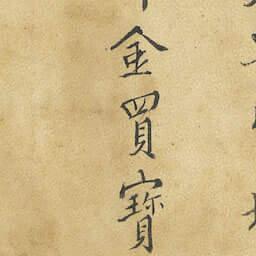 金買寶